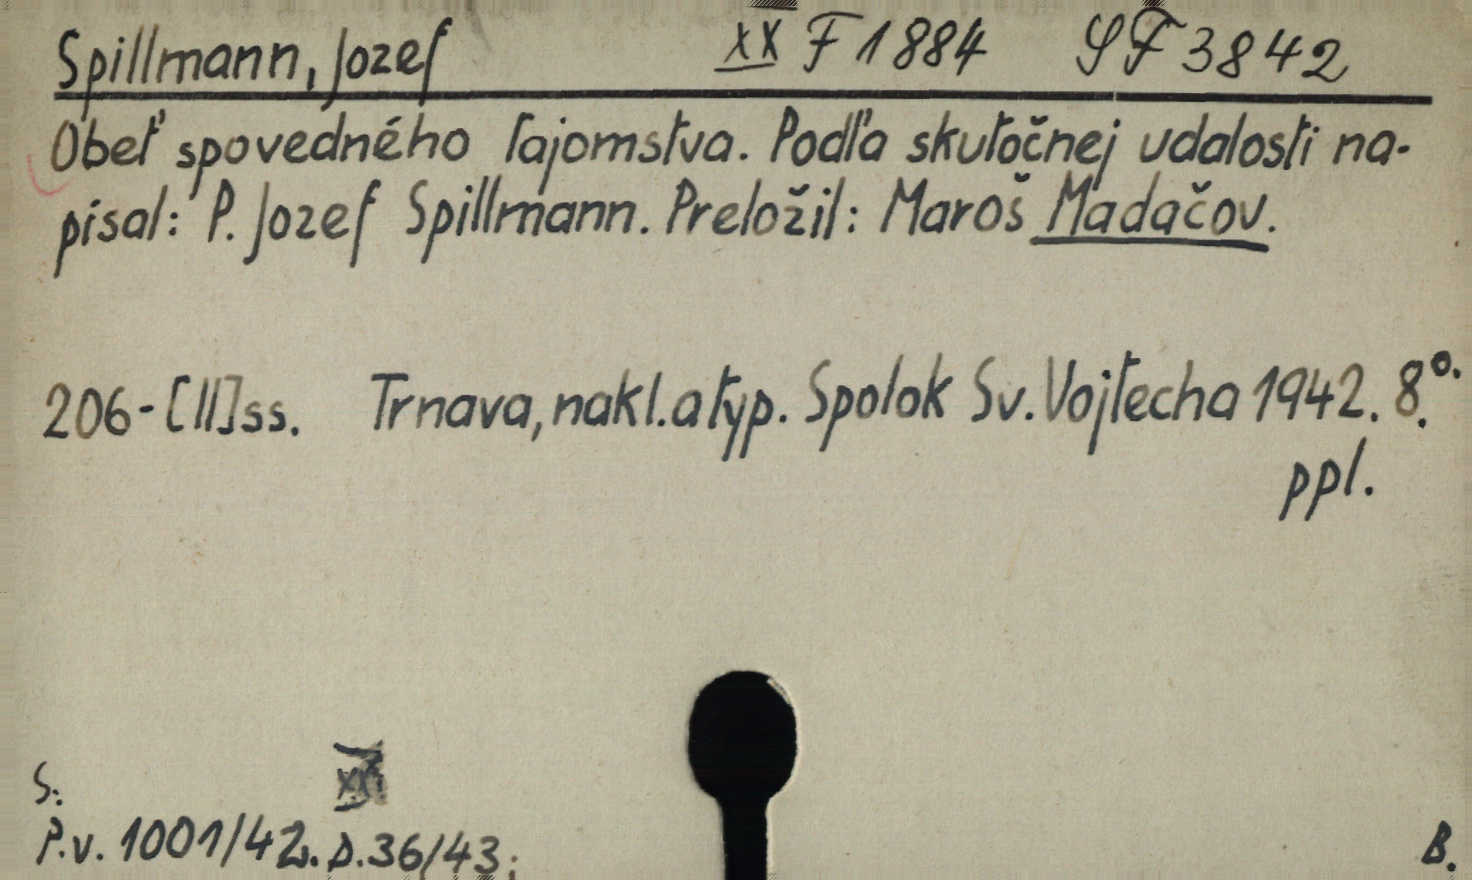 Spillmann, Jozef XX F 1884 SF 3842
Obeť spovedného tajomstva. Podľa skutočnej udalosti na-
písal: P. Jozef Spillmann. Preložil: Maroš Madačov.
206-[II] ss. Trnava, nakl. a typ. Spolok Sv. Vojtecha 1942. 8°.
ppl.
S:
P.v. 1001/42. D.36/43;
B.